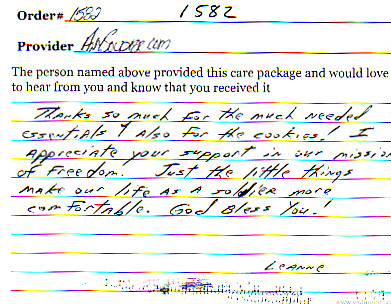 Order# 1582 1582
Provider
The person named above provided this care package and would love
to hear from you and know that you received it
Thanks so much for the much needed
essentials & also for the cookies! I
appreciate your support in our mission
of freedom. Just the little things
make our life as a soldier more
comfortable. God Bless You!
Leanne